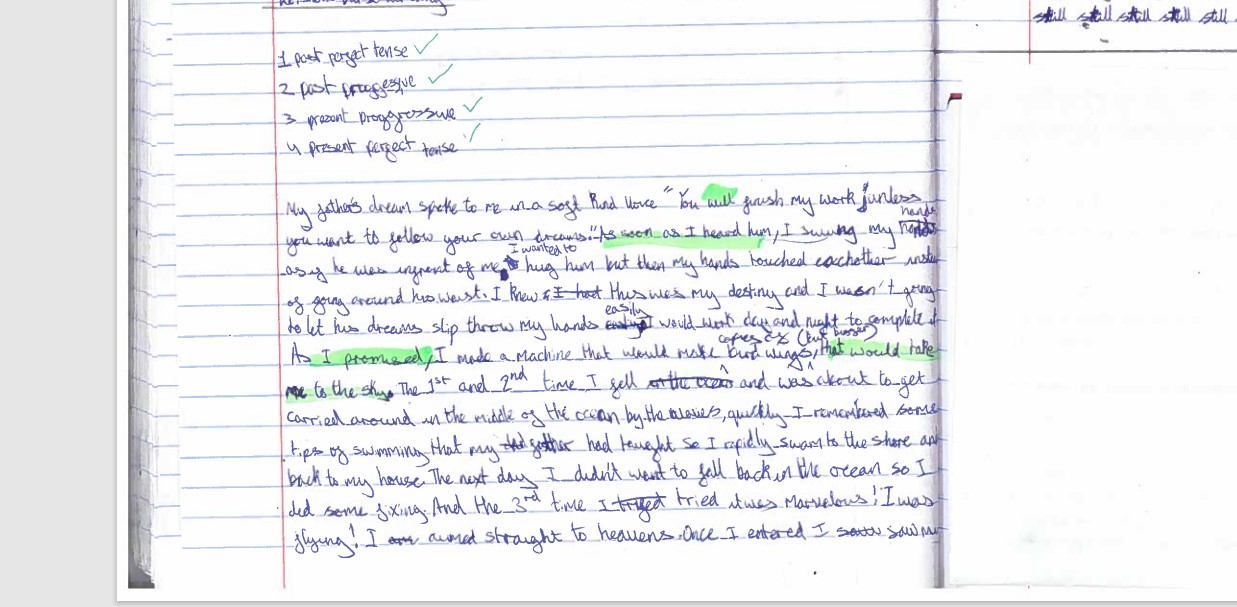 still still still still still
1 past perfect tense
2 past proggessive
3 present proggressive
4 present perfect tense
My father's dream spoke to me in a soft kind voice "You will finish my work unless
you want to follow your own dreams." As soon as I heard him, I swung my hands
as if he was infront of me, I wanted to hug him but then my hands touched eachother inste
of going around his waist. I knew I had this was my destiny and I wasn't going
to let his dreams slip throw my hands easily I would work day and night to complete it
As I promised, I made a machine that would make copies of (but bigger) bird wings, that would take
me to the sky. The 1st and 2nd time I fell in the ocean and was about to get
carried around in the middle of the ocean by the waves, quickly I remembered some
tips of swimming that my father had taught so I rapidly swam to the shore an
back to my house. The next day I didn't want to fall back in the ocean so I
did some fixing. And the 3rd time I tryed tried it was Marvelous! I was
flying! I am aimed straight to heavens. Once I entered I saw m